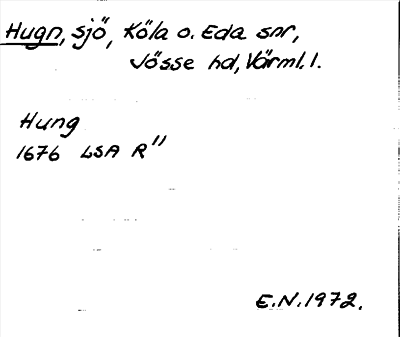 Hugn, sjö, Köla o. Eda snr,
Jösse hd, Värml. l.
Hung
1676 LSA R"
E.N. 1972.